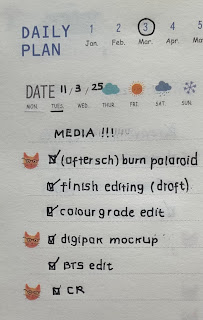 DAILY 1 2 3 4 5
PLAN Jan. Feb. Mar. Apr. Ma
DATE 11/3/25
MON. TUES. WED. THUR. FRI. SAT. SUN.
MEDIA !!!
(after sch) burn polaroid
finish editing (draft)
colour grade edit
digipak mockup
BTS edit
CR